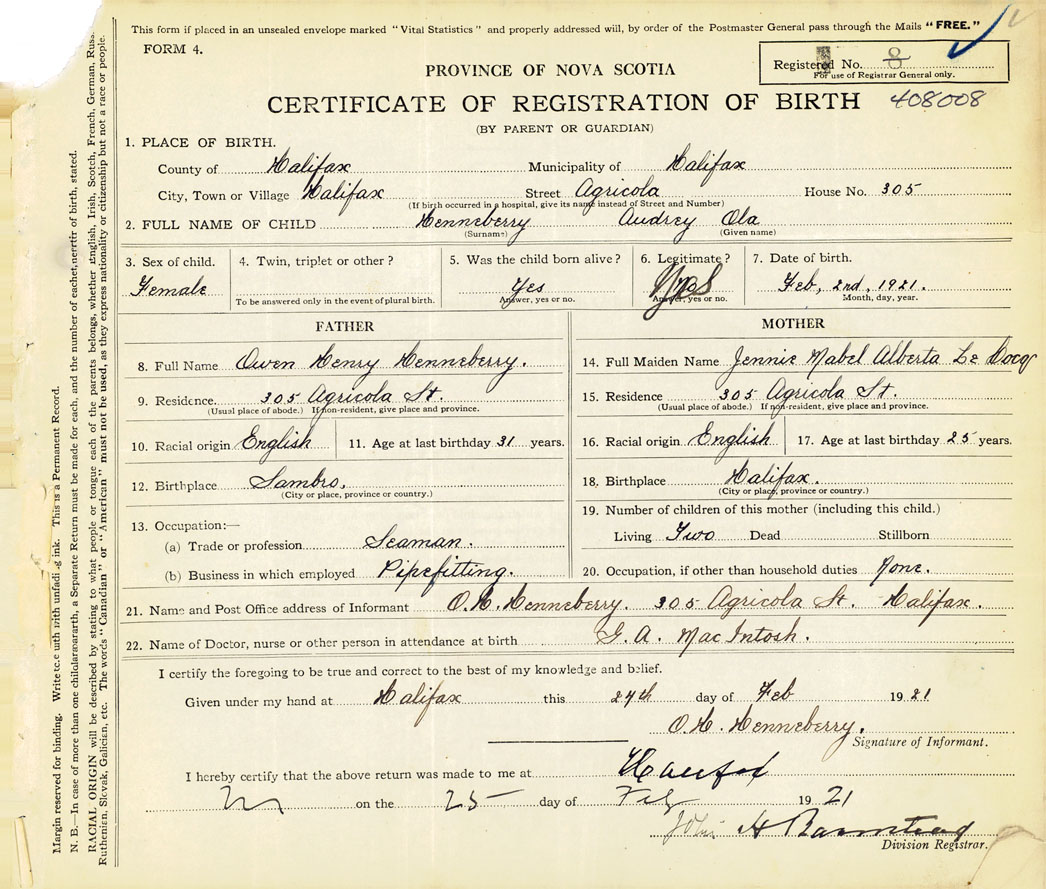 This form if placed in an unsealed envelope marked "Vital Statistics" and properly addressed will, by order of the Postmaster General pass through the Mails "FREE."
FORM 4.
Registered No. 8
For use of Registrar General only.
PROVINCE OF NOVA SCOTIA
CERTIFICATE OF REGISTRATION OF BIRTH 408008
(BY PARENT OR GUARDIAN)
1. PLACE OF BIRTH.
County of Halifax Municipality of Halifax
City, Town or Village Halifax Street Agricola House No. 305
(If birth occurred in a hospital, give its name instead of Street and Number)
2. FULL NAME OF CHILD Henneberry Audrey Ola
(Surname) (Given name)
3. Sex of child. Female
4. Twin, triplet or other?
To be answered only in the event of plural birth.
5. Was the child born alive? Yes
Answer, yes or no.
6. Legitimate? Yes
Answer, yes or no.
7. Date of birth. Feb, 2nd, 1921.
Month, day, year.
FATHER
8. Full Name Owen Henry Henneberry.
9. Residence. 305 Agricola St.
(Usual place of abode.) If non-resident, give place and province.
10. Racial origin English 11. Age at last birthday 31 years.
12. Birthplace Sambro.
(City or place, province or country.)
13. Occupation:—
(a) Trade or profession Seaman.
(b) Business in which employed Pipefitting.
MOTHER
14. Full Maiden Name Jennie Mabel Alberta Le Cocq
15. Residence 305 Agricola St.
(Usual place of abode.) If non-resident, give place and province.
16. Racial origin English 17. Age at last birthday 25 years.
18. Birthplace Halifax.
(City or place, province or country.)
19. Number of children of this mother (including this child.)
Living Two Dead Stillborn
20. Occupation, if other than household duties None.
21. Name and Post Office address of Informant O.H. Henneberry. 305 Agricola St. Halifax.
22. Name of Doctor, nurse or other person in attendance at birth G. A. MacIntosh.
I certify the foregoing to be true and correct to the best of my knowledge and belief.
Given under my hand at Halifax this 24th day of Feb 1921
O.H. Henneberry.
Signature of Informant.
I hereby certify that the above return was made to me at Halifax
on the 25 day of Feb 1921
John H Barnstead
Division Registrar.
Margin reserved for binding. Write with unfading ink. This is a Permanent Record.
N. B.—In case of more than one child a Separate Return must be made for each, and the number of each of birth, stated.
RACIAL ORIGIN will be described by stating to what people or tongue each of the parents belongs, whether English, Irish, Scotch, French, German, Russ
Ruthenian, Slovak, Galician, etc. The words "Canadian" or "American" must not be used, as they express nationality or citizenship but not a race or people.